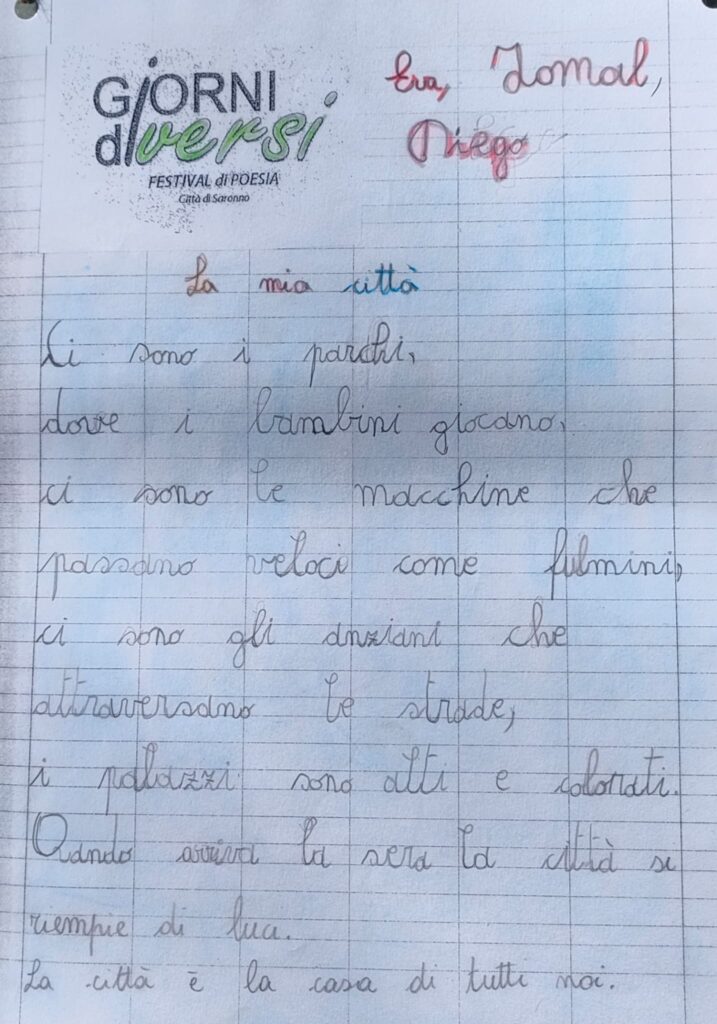 GiORNI
diversi
FESTIVAL di POESIA
Città di Saronno
Eva, Jomal,
Diego
La mia città
Ci sono i parchi,
dove i bambini giocano,
ci sono le macchine che
passano veloci come fulmini,
ci sono gli anziani che
attraversano le strade,
i palazzi sono alti e colorati.
Quando arriva la sera la città si
riempie di luci.
La città è la casa di tutti noi.